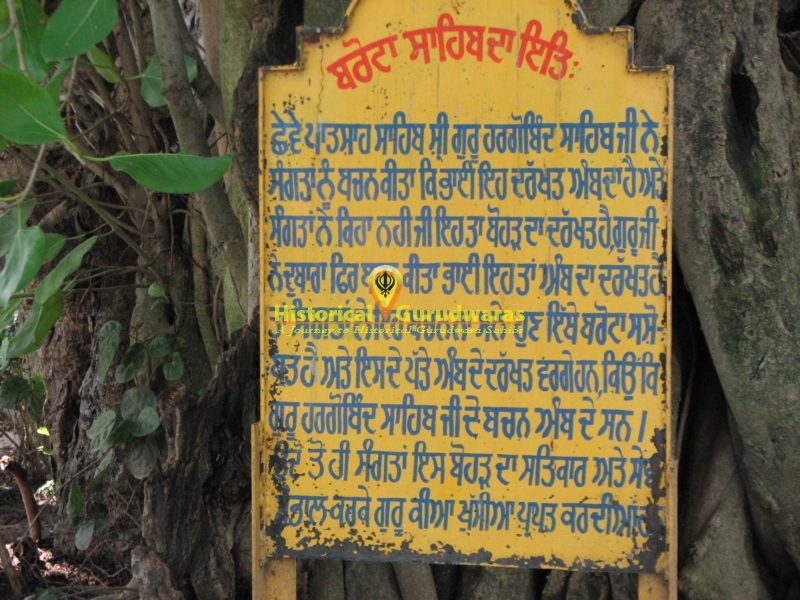 ਬਰੋਟਾ ਸਾਹਿਬ ਦਾ ਇਤਿ:
ਛੇਵੇਂ ਪਾਤਸਾਹ ਸਾਹਿਬ ਸ਼੍ਰੀ ਗੁਰੂ ਹਰਗੋਬਿੰਦ ਸਾਹਿਬ ਜੀ ਨੇ
ਸੰਗਤਾਂ ਨੂੰ ਬਚਨ ਕੀਤਾ ਕਿ ਭਾਈ ਇਹ ਦਰੱਖਤ ਅੰਬ ਦਾ ਹੈ ਅਤੇ
ਸੰਗਤਾਂ ਨੇ ਕਿਹਾ ਨਹੀ ਜੀ ਇਹ ਤਾ ਬੋਹੜ ਦਾ ਦਰੱਖਤ ਹੈ, ਗੁਰੂ ਜੀ
ਨੇ ਦੁਬਾਰਾ ਫਿਰ ਕੀਤਾ ਭਾਈ ਇਹ ਤਾਂ ਅੰਬ ਦਾ ਦਰੱਖਤ ਹੈ
Historical Gurudwaras
A Journey to Historical Gurudwara Sahibs
ਹੁਣ ਇੱਥੇ ਬਰੋਟਾ ਸਸ਼ੋ
ਭਤ ਹੈ ਅਤੇ ਇਸ ਦੇ ਪੱਤੇ ਅੰਬ ਦੇ ਦਰੱਖਤ ਵਰਗੇ ਹਨ, ਕਿਉਂ ਕਿ
ਗੁਰੂ ਹਰਗੋਬਿੰਦ ਸਾਹਿਬ ਜੀ ਦੇ ਬਚਨ ਅੰਬ ਦੇ ਸਨ।
ਤੋਂ ਹੀ ਸੰਗਤਾਂ ਇਸ ਬੋਹੜ ਦਾ ਸਤਿਕਾਰ ਅਤੇ ਸੇਵਾ
ਭਾਲ ਕਰਕੇ ਗੁਰੂ ਕੀਆ ਖੁੱਸੀਆ ਪ੍ਰਾਪਤ ਕਰਦੀਆਂ